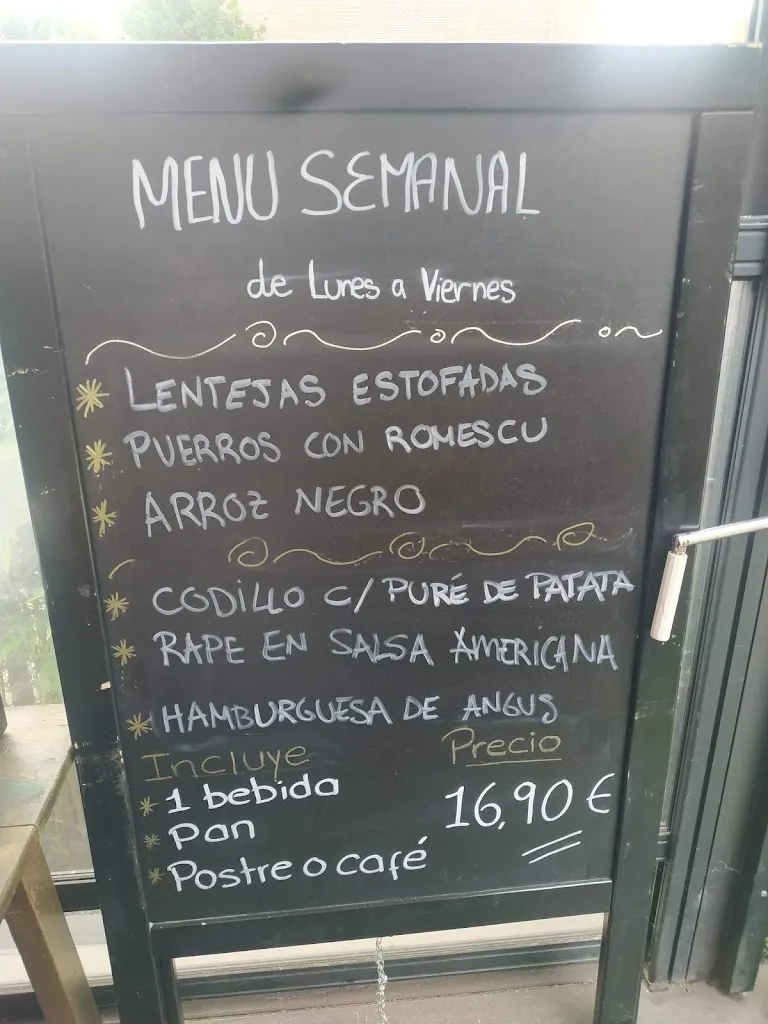 MENU SEMANAL
de Lunes a Viernes
LENTEJAS ESTOFADAS
PUERROS CON ROMESCU
ARROZ NEGRO
CODILLO C/ PURÉ DE PATATA
RAPE EN SALSA AMERICANA
HAMBURGUESA DE ANGUS
Incluye Precio
1 bebida 16,90 €
Pan
Postre o café